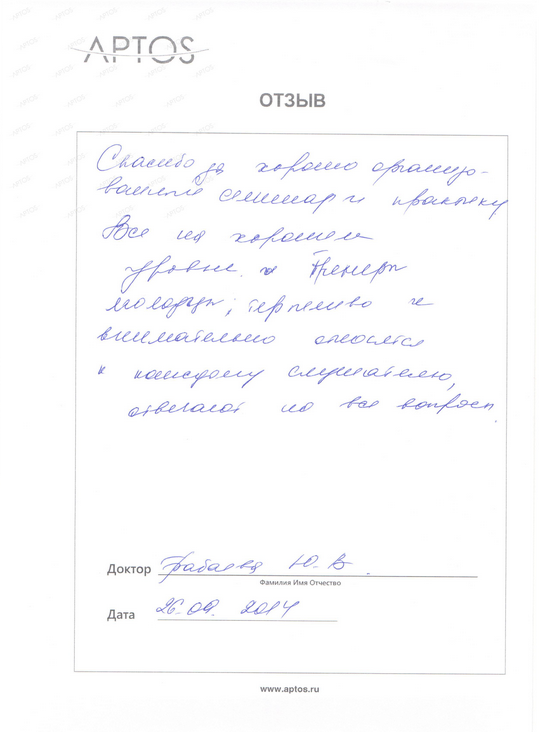 APTOS
ОТЗЫВ
Спасибо за хорошо организо-
ванные семинар и практику
Все на хорошем
уровне. Тренеры
молодцы, терпеливо и
внимательно относятся
к каждому слушателю,
отвечают на все вопросы.
Доктор Ю. В.
Фамилия Имя Отчество
Дата 26.09. 2014
www.aptos.ru